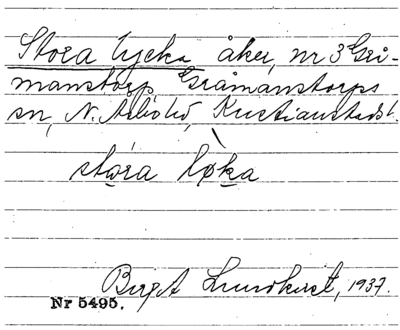 Stora lycka åker, nr 3 Grå-
manstorp, Gråmanstorps
sn, N. Åsbo hd, Kristianstads l.
stọra lø̀ka
Birgit Lundkvist, 1937.
Nr 5495.